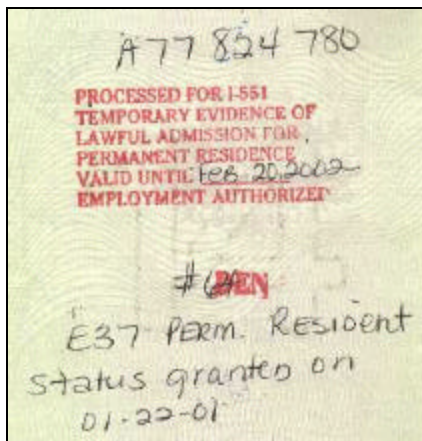 A77 824 780
PROCESSED FOR I-551
TEMPORARY EVIDENCE OF
LAWFUL ADMISSION FOR
PERMANENT RESIDENCE
VALID UNTIL Feb 20, 2002
EMPLOYMENT AUTHORIZED
DEN
E37 PERM. Resident
Status granted on
01-22-01